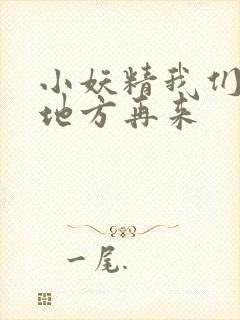 小妖精我们
地方再来
一尾.